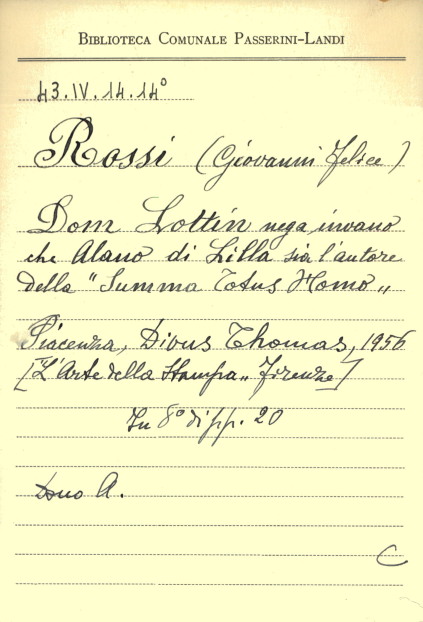 BIBLIOTECA COMUNALE PASSERINI-LANDI
43.IV.14.14°
Rossi (Giovanni Felice)
Dom Lottin nega invano
che Alano di Lilla sia l'autore
della "Summa Totus Homo„
Piacenza, Divus Thomas, 1956
[L'Arte della Stampa„ Firenze]
In 8° di pp. 20
Dono A.
C